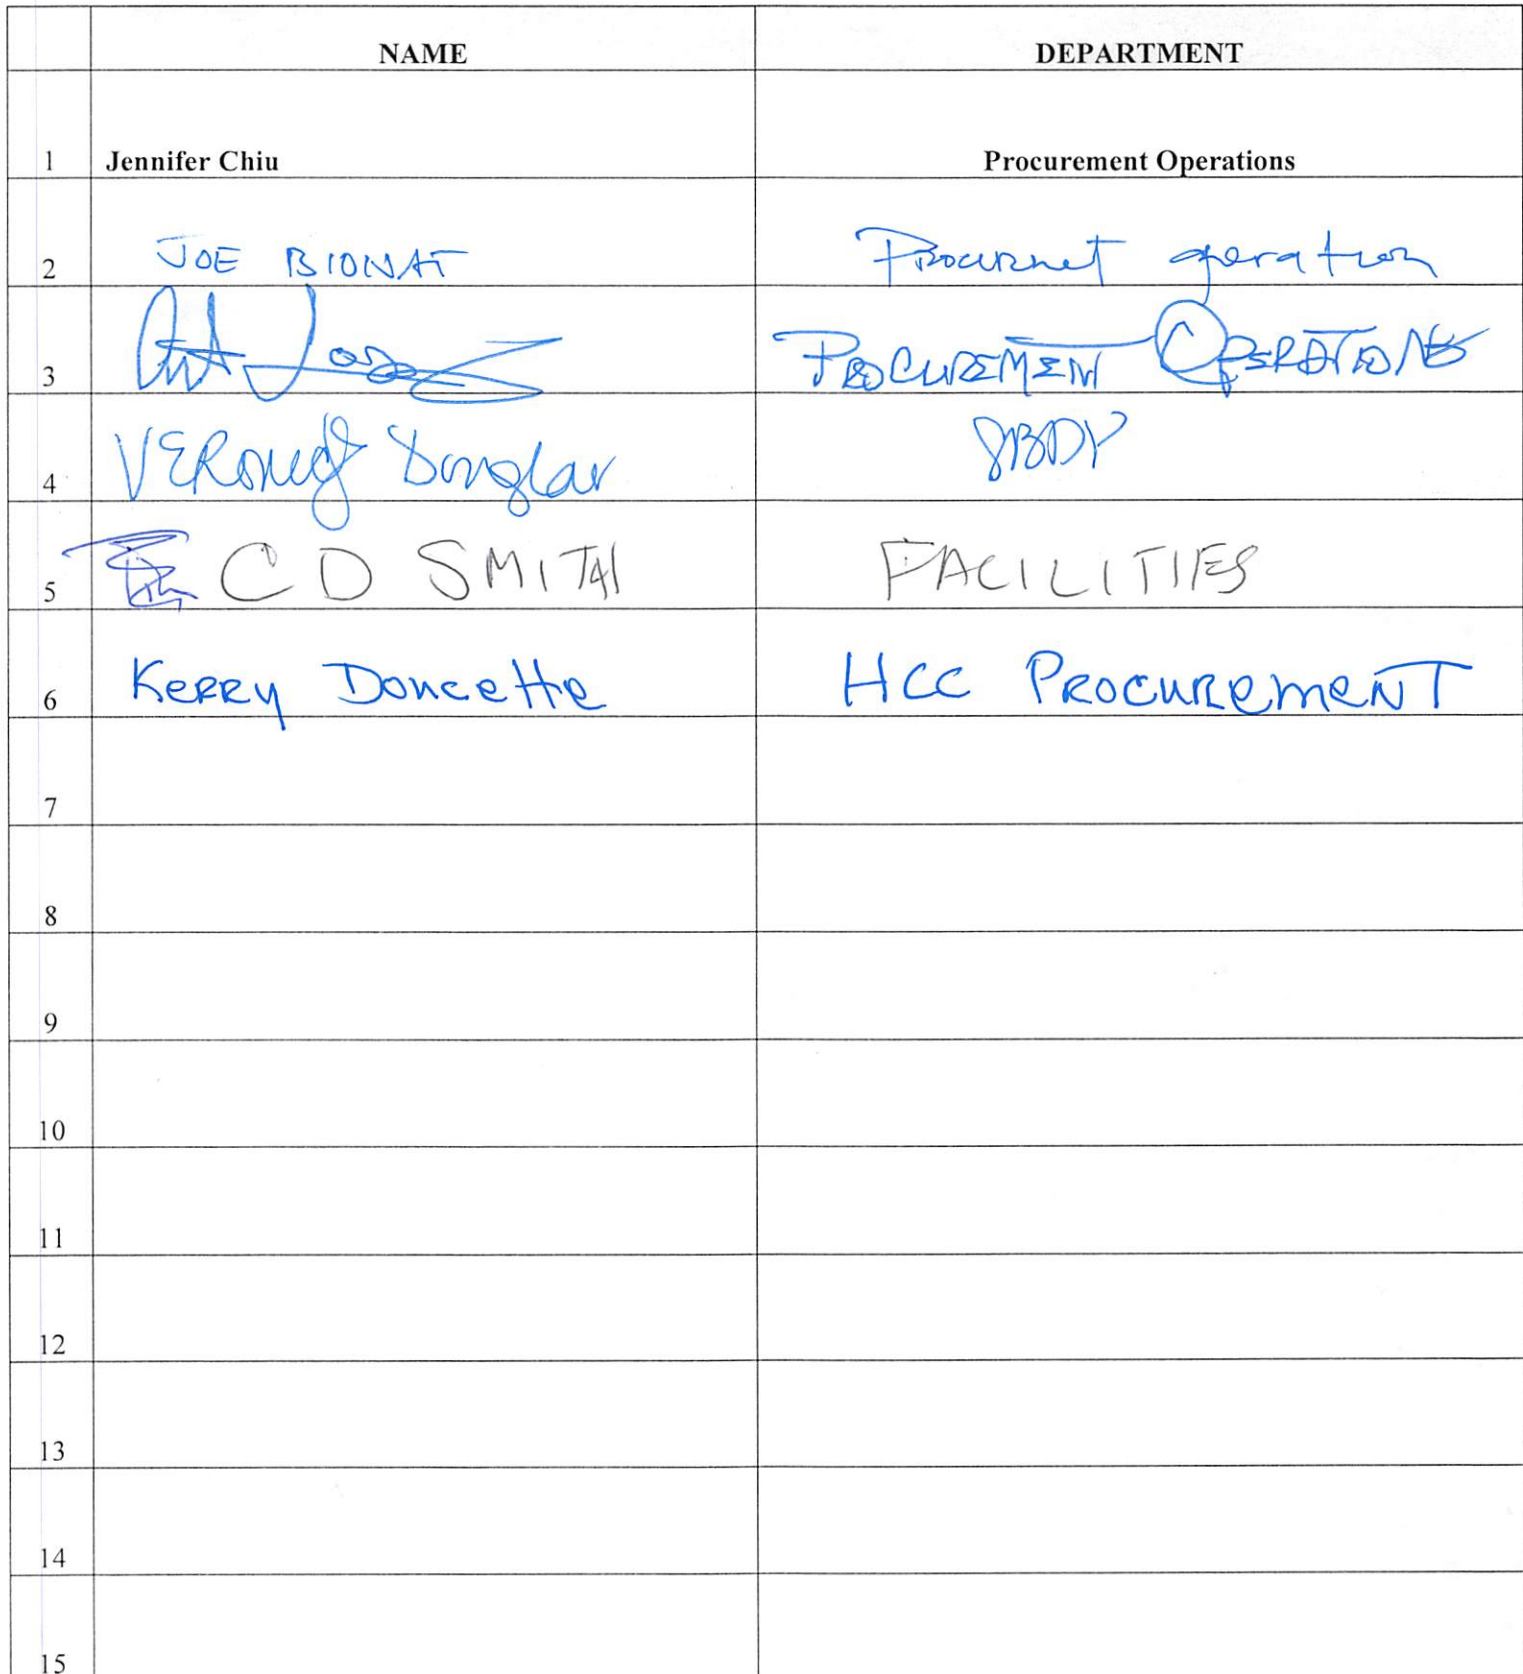 NAME DEPARTMENT
1 Jennifer Chiu Procurement Operations
2 JOE BIONAT Procurnet operation
3 Art PROCUREMENT OPERATIONS
4 VERONICA Douglas SBDP
5 C D SMITH FACILITIES
6 KERRY Doucette HCC PROCUREMENT
7
8
9
10
11
12
13
14
15